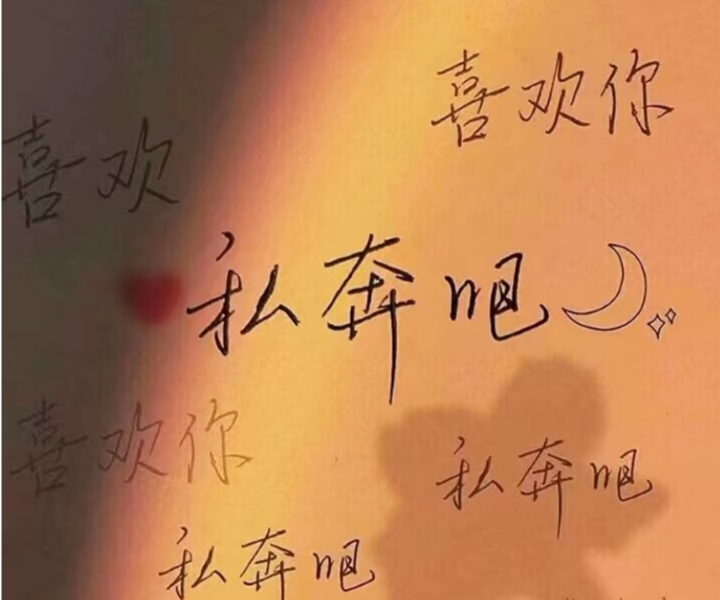 喜欢你
喜欢
私奔吧
喜欢你
私奔吧
私奔吧